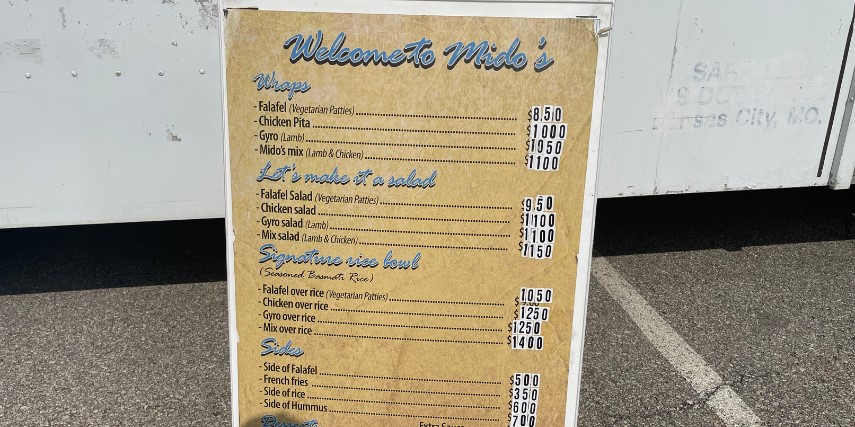 Welcome to Mido's
Wraps
- Falafel (Vegetarian Patties) $8.50
- Chicken Pita $1000
- Gyro (Lamb) $1050
- Mido's mix (Lamb & Chicken) $1100
Let's make it a salad
- Falafel Salad (Vegetarian Patties) $9.50
- Chicken salad $1100
- Gyro salad (Lamb) $1100
- Mix salad (Lamb & Chicken) $1150
Signature rice bowl
(Seasoned Basmati Rice)
- Falafel over rice (Vegetarian Patties) $1050
- Chicken over rice $1250
- Gyro over rice $1250
- Mix over rice $1400
Sides
- Side of Falafel $500
- French fries $350
- Side of rice $600
- Side of Hummus $700
Extra Sauce
Kansas City, MO.